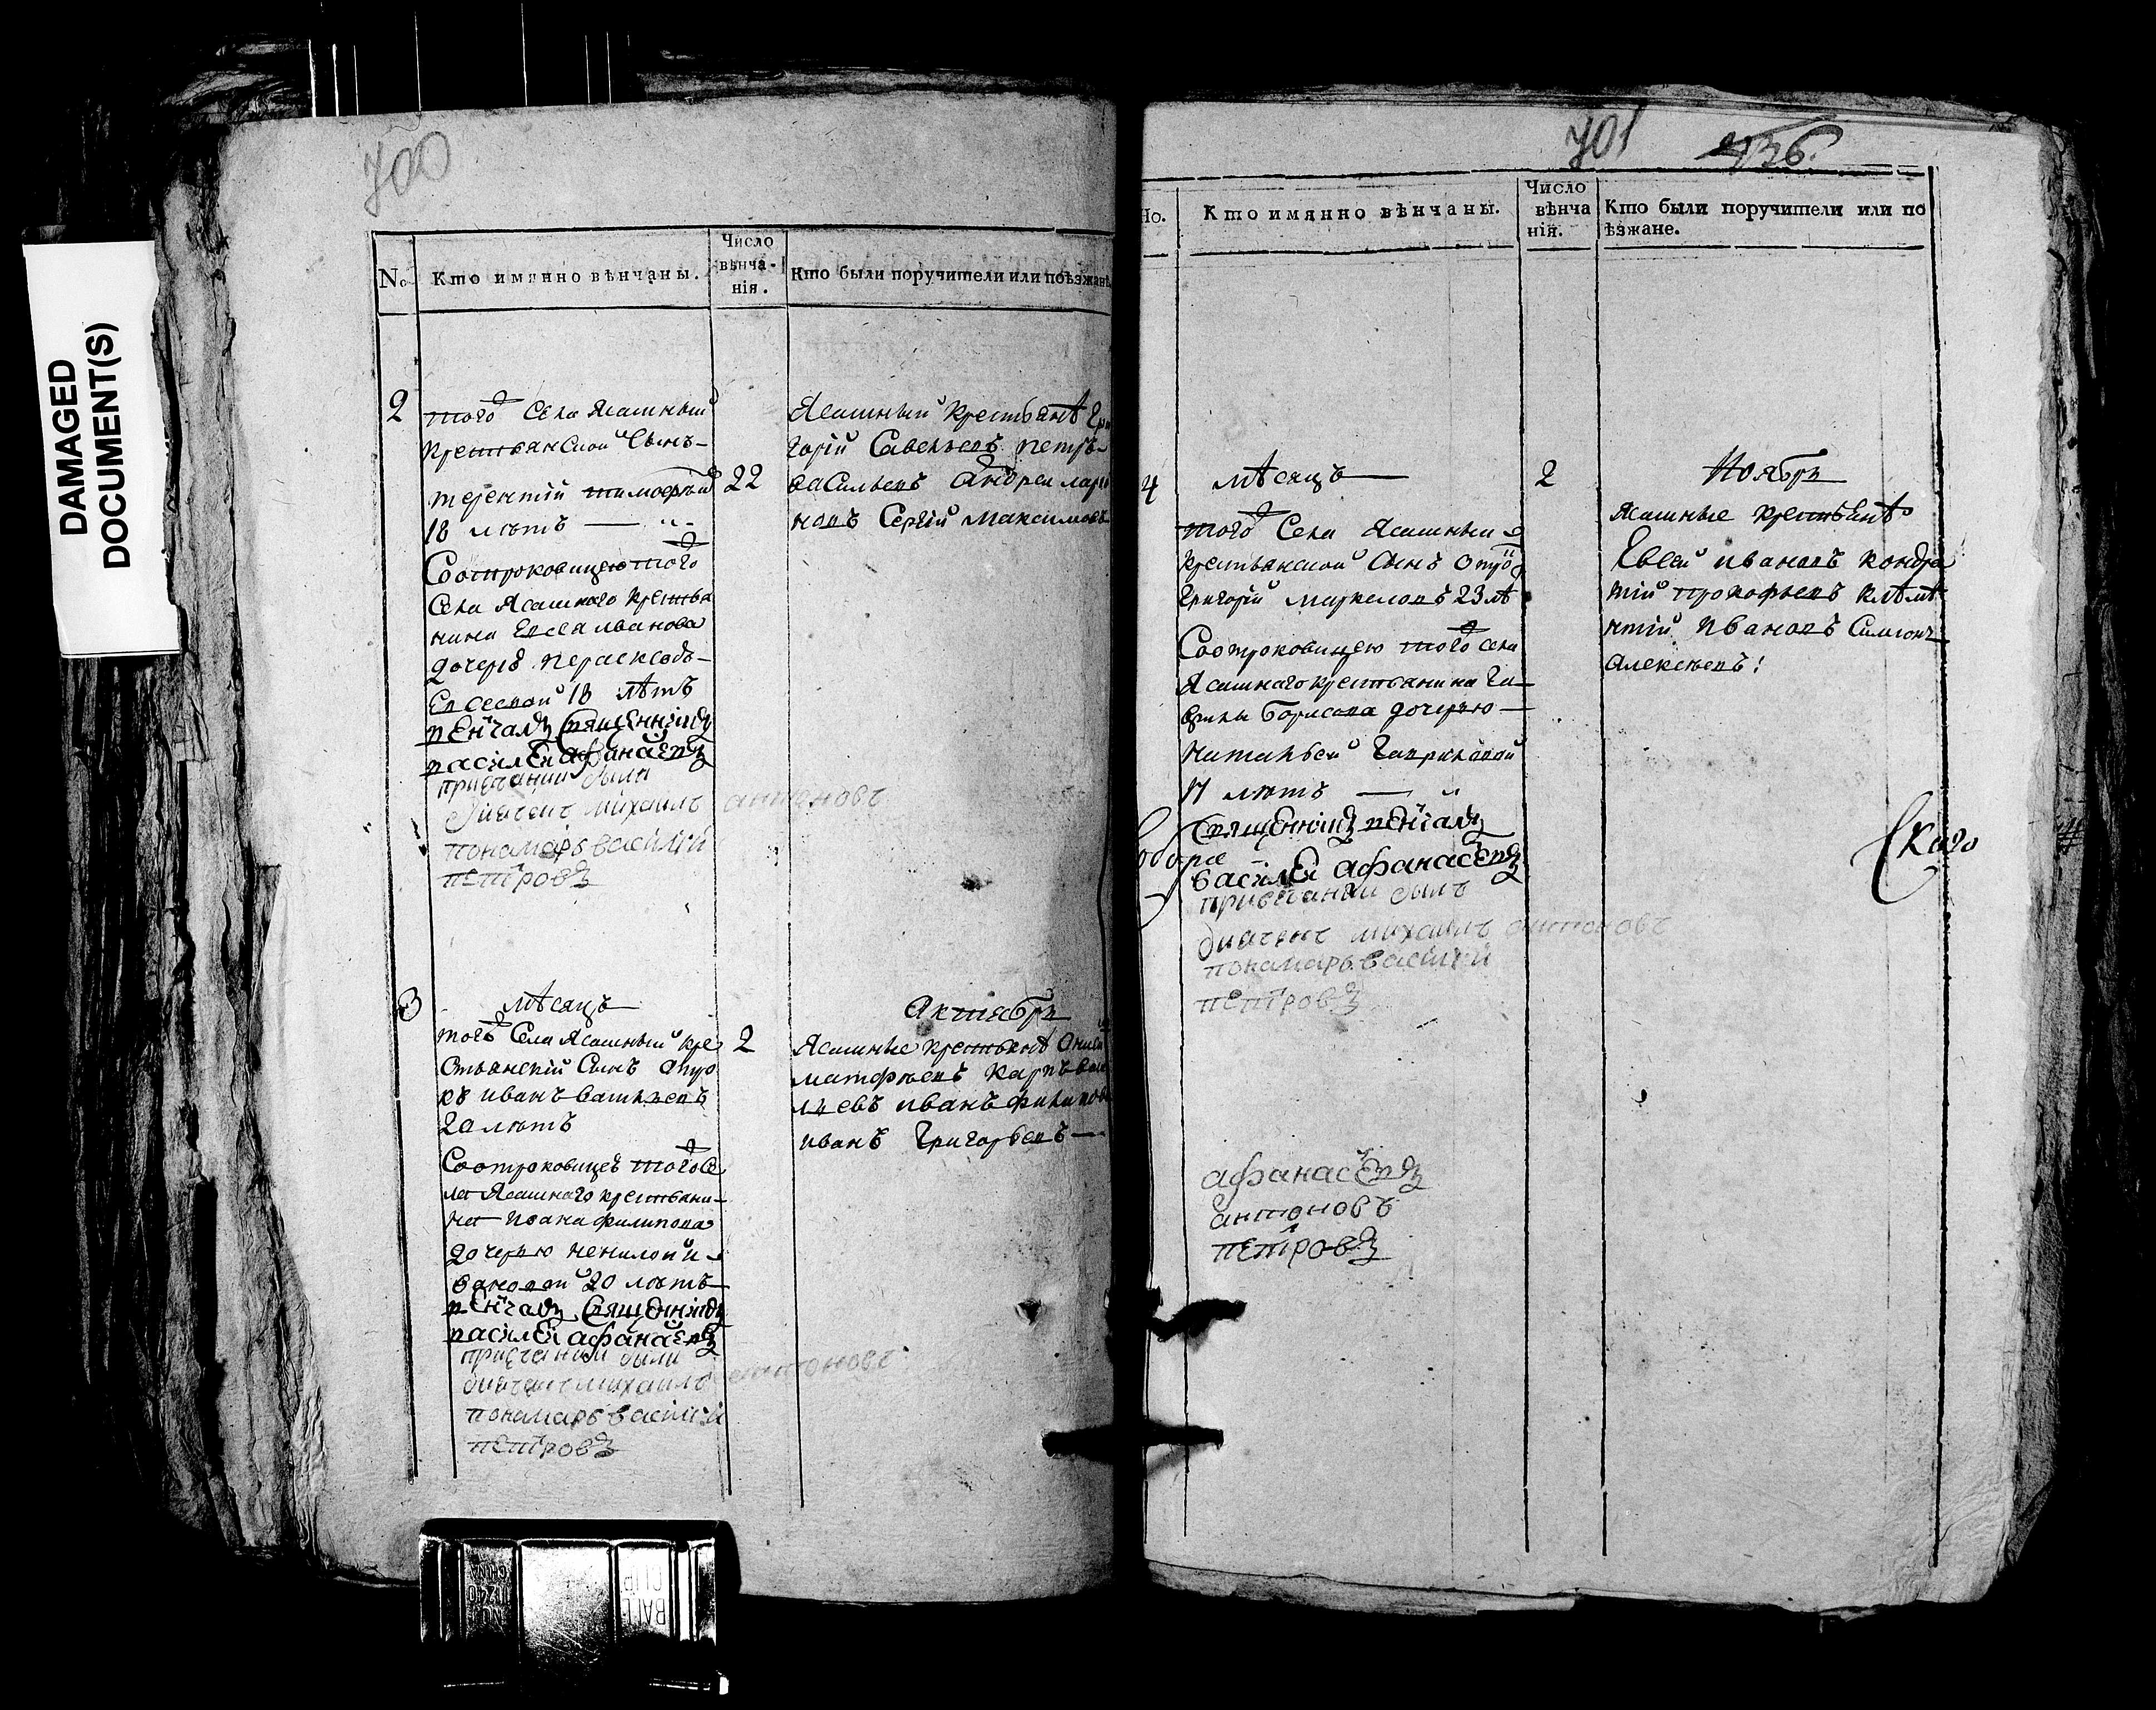 DAMAGED
DOCUMENT(S)
700
No
Кто имянно вѣнчаны.
Число
вѣнча-
нія.
Кто были поручители или поѣзжане
2
того Села Ясашный
крестьянской Сынъ
терентій тимофѣй
18 лѣтъ
Соотроковицею того
Села Ясашнаго крестья
нина Евсея иванова
дочерью
Евсевой 18 лѣтъ
вѣнчалъ Священникъ
василей афанасѣевъ
привѣчаніи были
диячекъ михаилъ антоновъ
пономарь василій
петровъ
22
Ясашный крестьянѣ Гри
горій Савельевъ петръ
васильевъ Андреи лари
новъ Сергій максимовъ
3
мѣсяцъ
Актября
того Села Ясашный кре
стьянскій Сынъ отро
къ иванъ васильевъ
20 лѣтъ
Соотроковицеѣ того Се
ла Ясашнаго крестьяни
на ивана филипова
дочерью ненилой и
вановой 20 лѣтъ
вѣнчалъ Священникъ
василей афанасѣевъ
привѣчаніи были
диячекъ михаилъ антоновъ
пономарь василій
петровъ
2
Ясашные крестьянѣ
матфѣевъ карпъ васи
льевъ иванъ филипов
иванъ Григорьевъ
701
No.
Кто имянно вѣнчаны.
Число
вѣнча
нія.
Кто были поручители или по
ѣзжане.
4
мѣсяцъ
2
Ноября
того Села Ясашный
крестьянской Сынъ отро
Григорій маркеловъ 23 лѣ
Соотроковицею того села
Ясашнаго крестьянина Га
врилы борисова дочерью
наталией Гавриловой
17 лѣтъ
Священникъ вѣнчалъ
василей афанасѣевъ
привѣчаніи былъ
диячекъ михаилъ антоновъ
пономарь василій
петровъ
Ясашные крестьянѣ
Евсей ивановъ кондра
тій прокофьевъ клѣмѣ
нтій ивановъ Симионъ
алексѣевъ
скаго
афанасѣевъ
антоновъ
петровъ